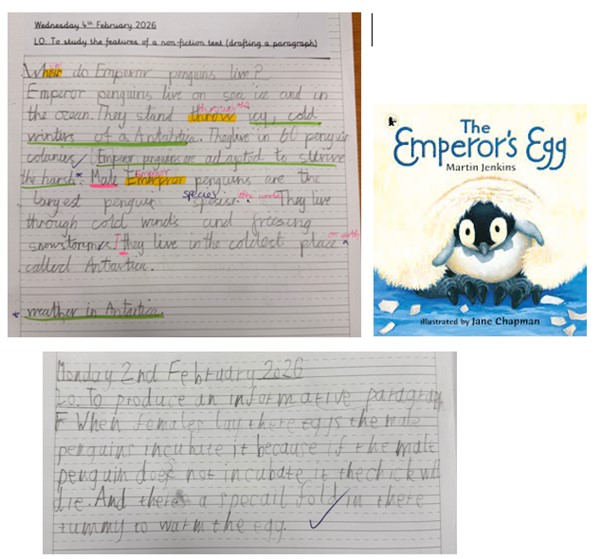 Wednesday 4th February 2026
LO: To study the features of a non-fiction text (drafting a paragraph)
Wher do Emperor penguins live?
Emperor penguins live on sea ice and in
the ocean. They stand throw through the icy, cold
winters of a Antartica. They live in 60 penguin
colonies/ Emperor penguins are adapted to survive
the harsh * Male Emperor penguins are the
largest penguin species They live
through cold winds and friesing
snowstormes. They live in the coldest place on earth
called Antartica.
* weather in Antartica.
The
Emperor's Egg
Martin Jenkins
illustrated by Jane Chapman
Monday 2nd February 2026
Lo. To produce an informative paragraph
F When females lay there eggs the male
penguins incubate it because if the male
penguin does not incubate it the chick will
die. And there's a specail fold in there
tummy to warm the egg.